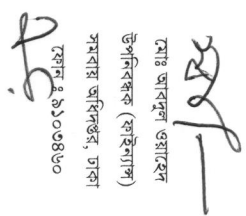 মোঃ আবদুল ওয়াহেদ
উপনিবন্ধক (ফাইন্যান্স)
সমবায় অধিদপ্তর, ঢাকা
ফোন : ৯১০৩৪৬০